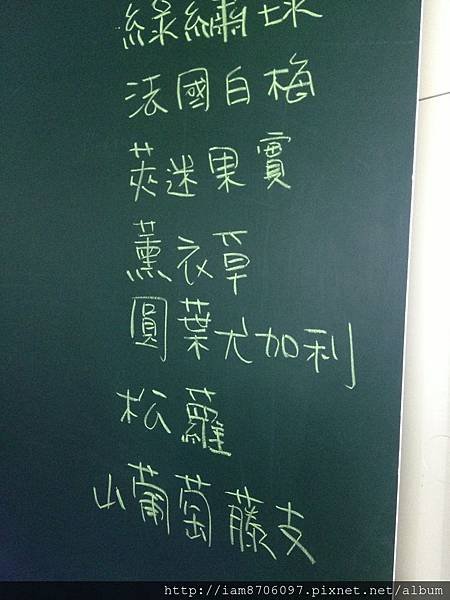 綠繡球
法國白梅
莢迷果實
薰衣草
圓葉尤加利
松蘿
山葡萄藤支
http://iam8706097.pixnet.net/album